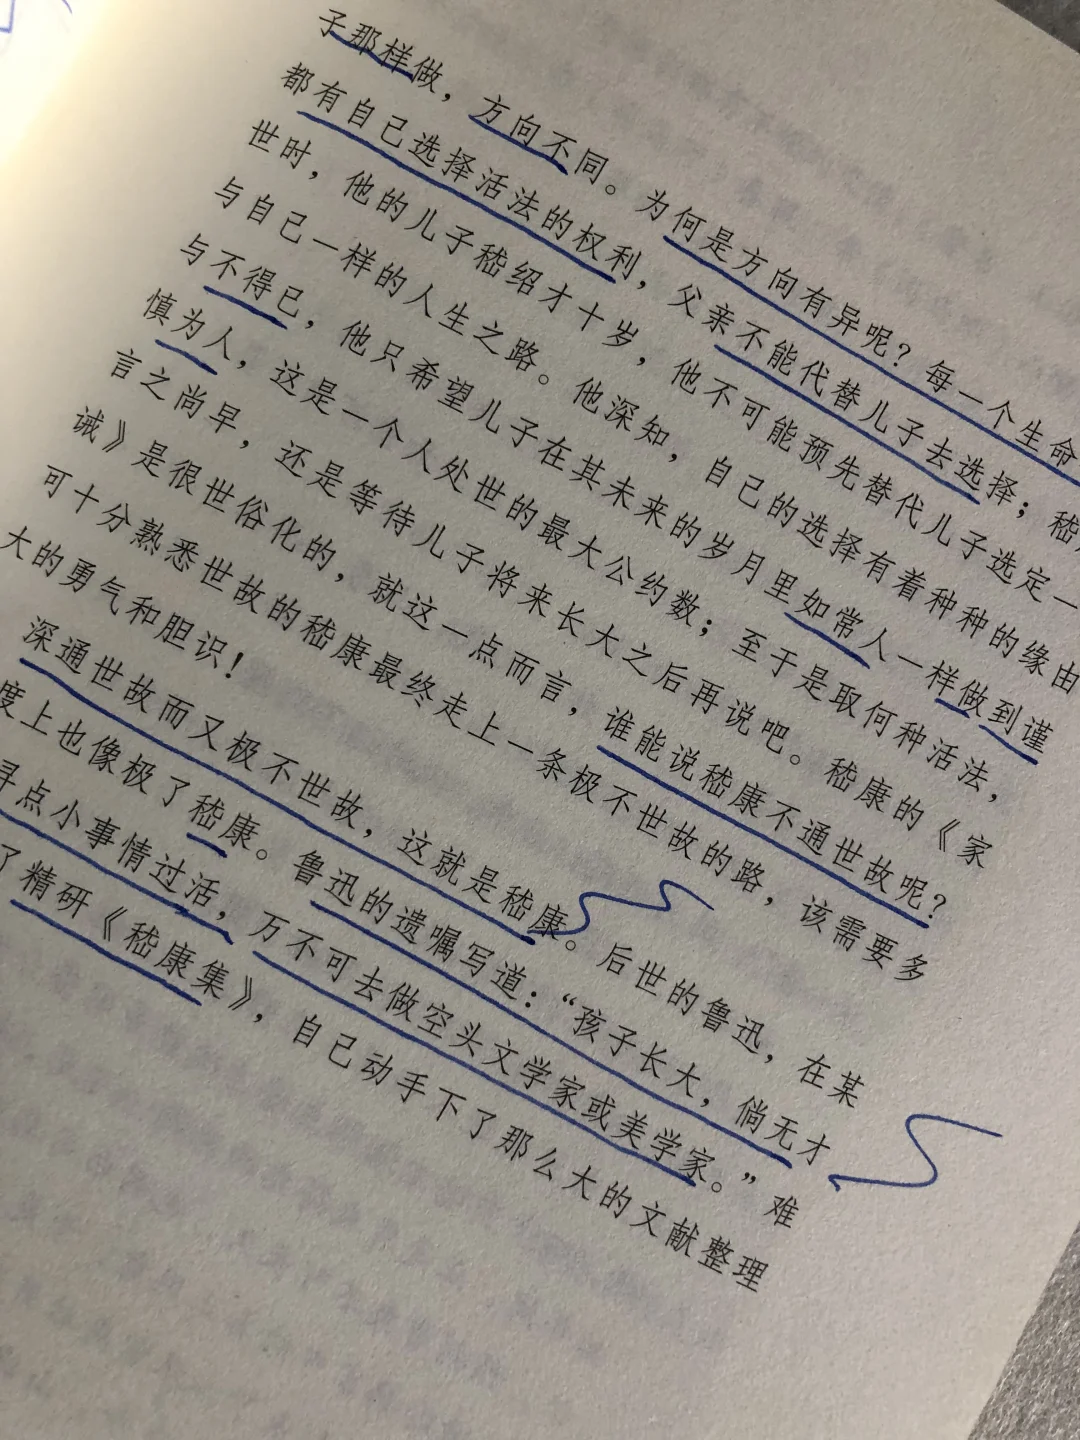 子那样做，方向不同。为何是方向有异呢？每一个生命
都有自己选择活法的权利，父亲不能代替儿子去选择；嵇
世时，他的儿子嵇绍才十岁，他不可能预先替代儿子选定一
与自己一样的人生之路。他深知，自己的选择有着种种的缘由
与不得已，他只希望儿子在其未来的岁月里如常人一样做到谨
慎为人，这是一个人处世的最大公约数；至于是取何种活法，
言之尚早，还是等待儿子将来长大之后再说吧。嵇康的《家
诫》是很世俗化的，就这一点而言，谁能说嵇康不通世故呢？
可十分熟悉世故的嵇康最终走上一条极不世故的路，该需要多
大的勇气和胆识！
深通世故而又极不世故，这就是嵇康。后世的鲁迅，在某
度上也像极了嵇康。鲁迅的遗嘱写道：“孩子长大，倘无才
寻点小事情过活，万不可去做空头文学家或美学家。”难
了精研《嵇康集》，自己动手下了那么大的文献整理